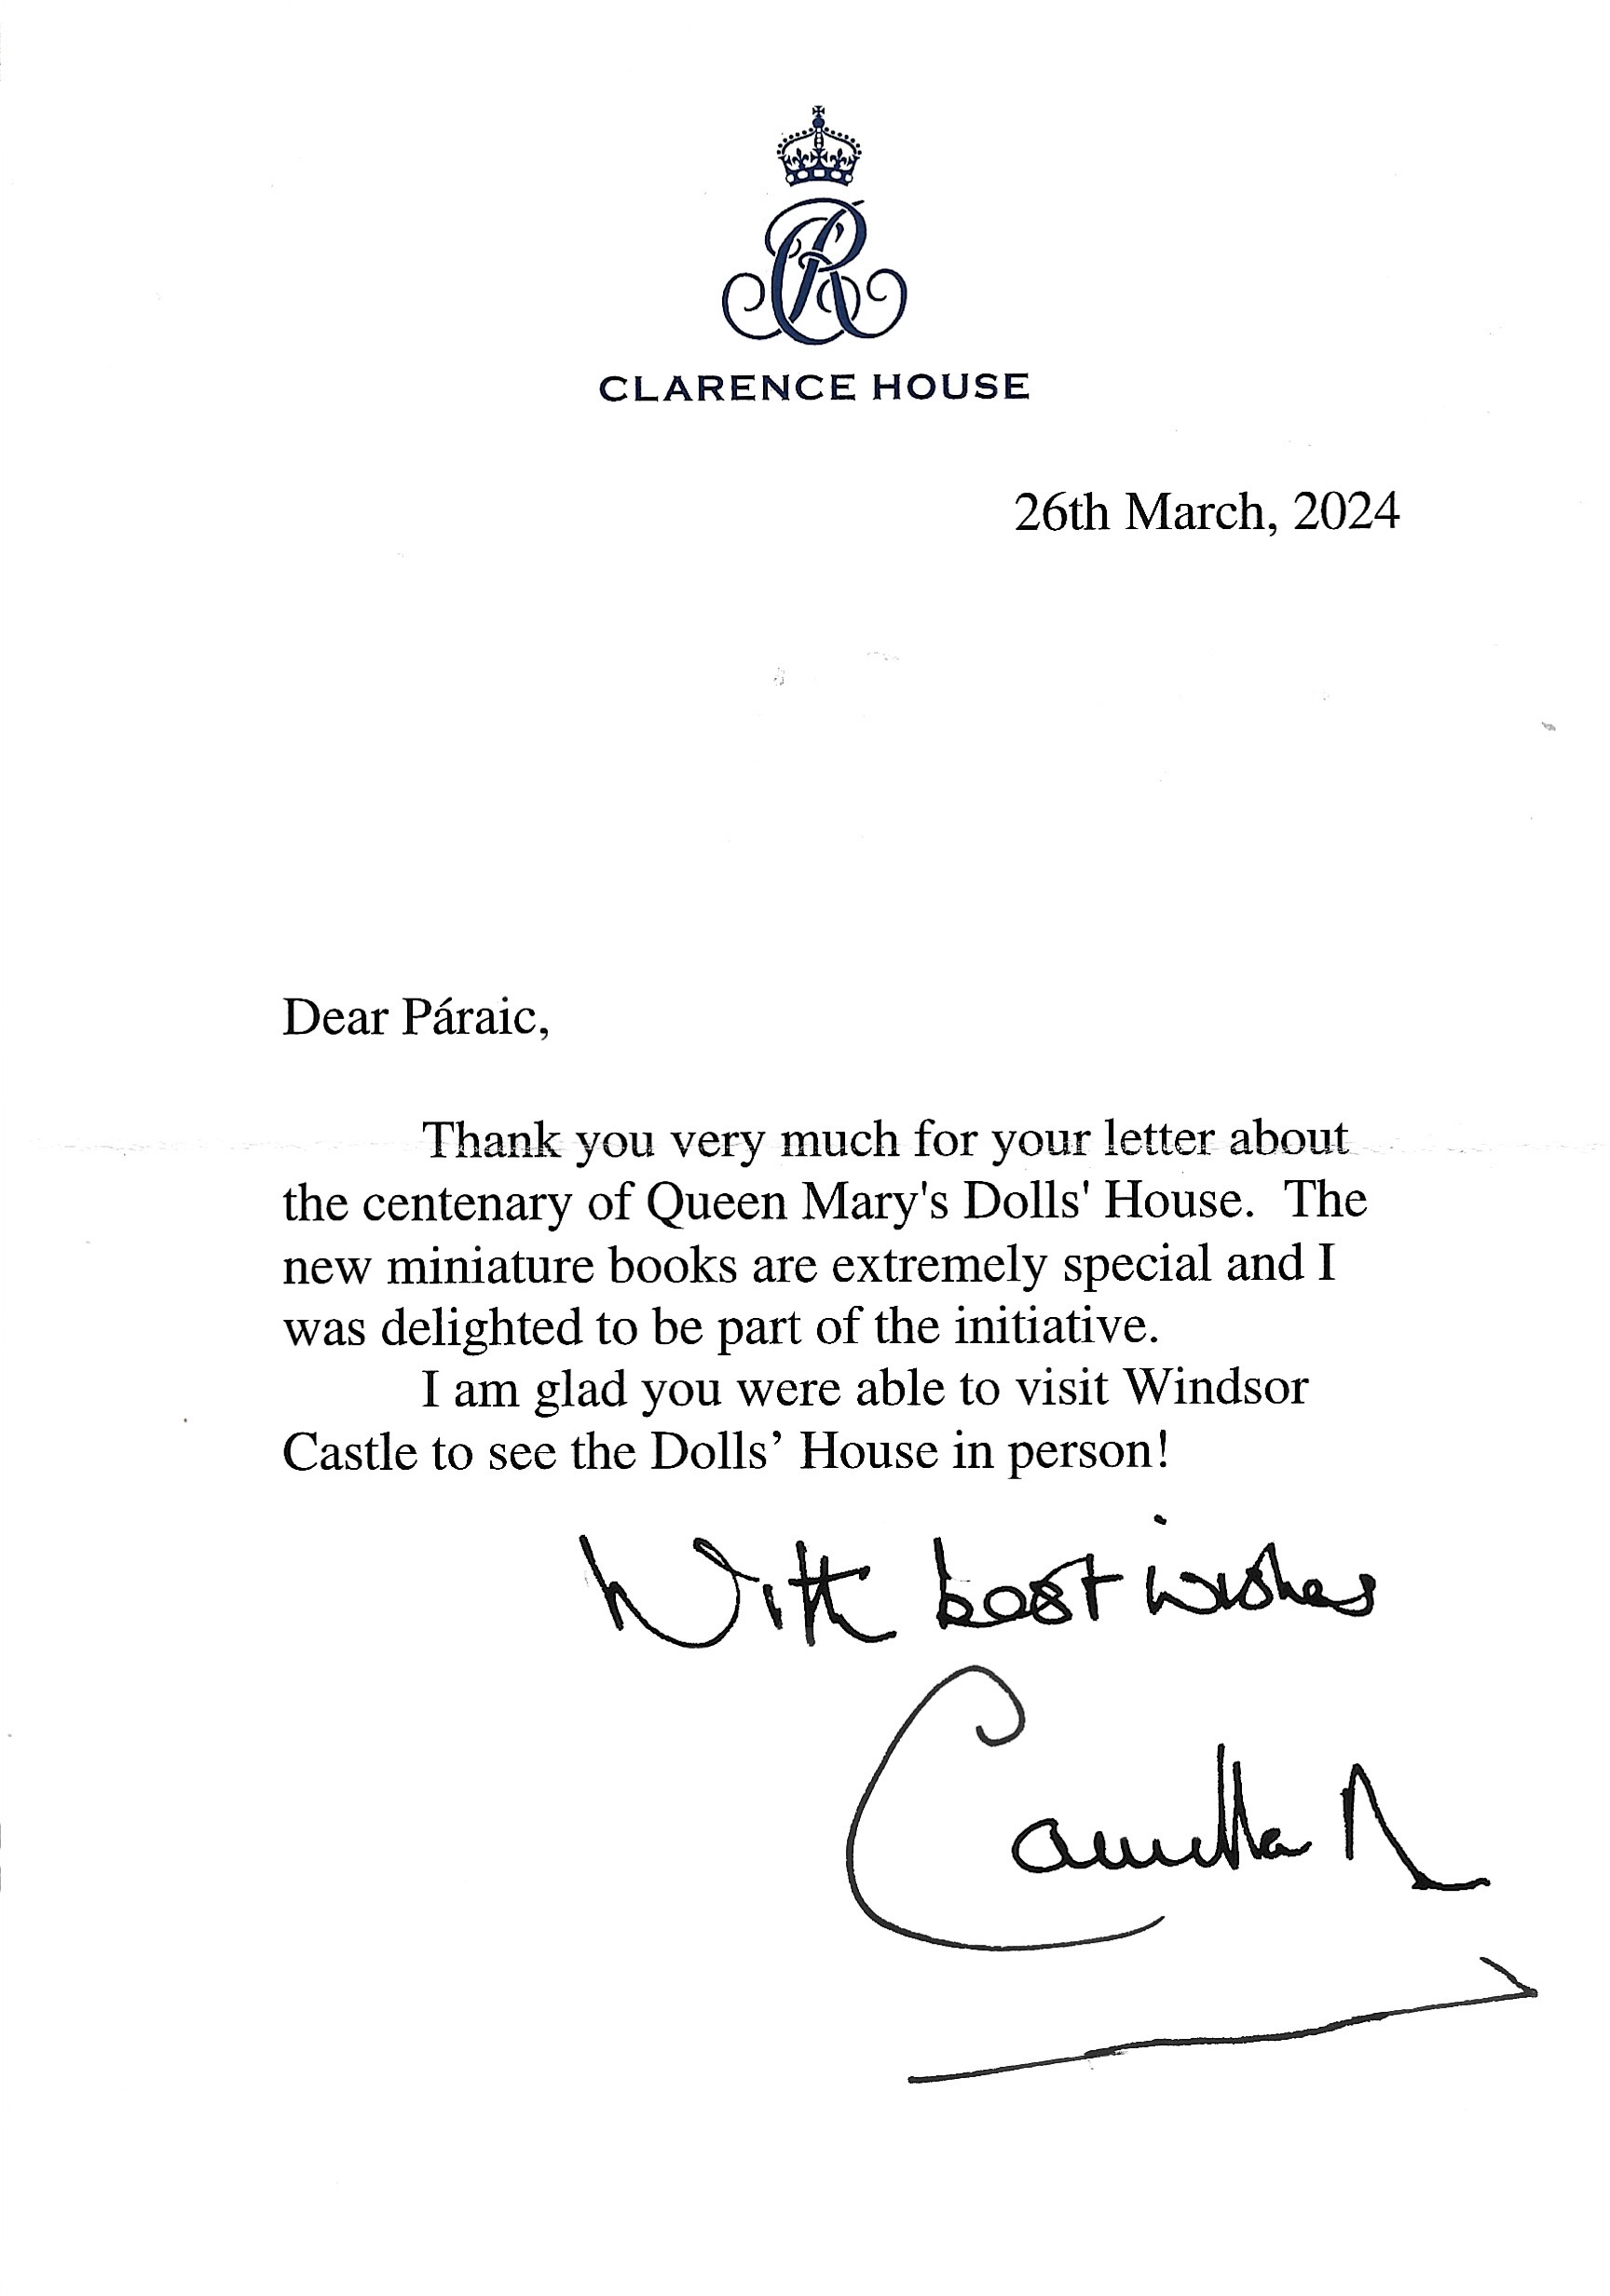 CR
CLARENCE HOUSE
26th March, 2024
Dear Páraic,
Thank you very much for your letter about
the centenary of Queen Mary's Dolls' House. The
new miniature books are extremely special and I
was delighted to be part of the initiative.
I am glad you were able to visit Windsor
Castle to see the Dolls’ House in person!
With best wishes
Camilla R